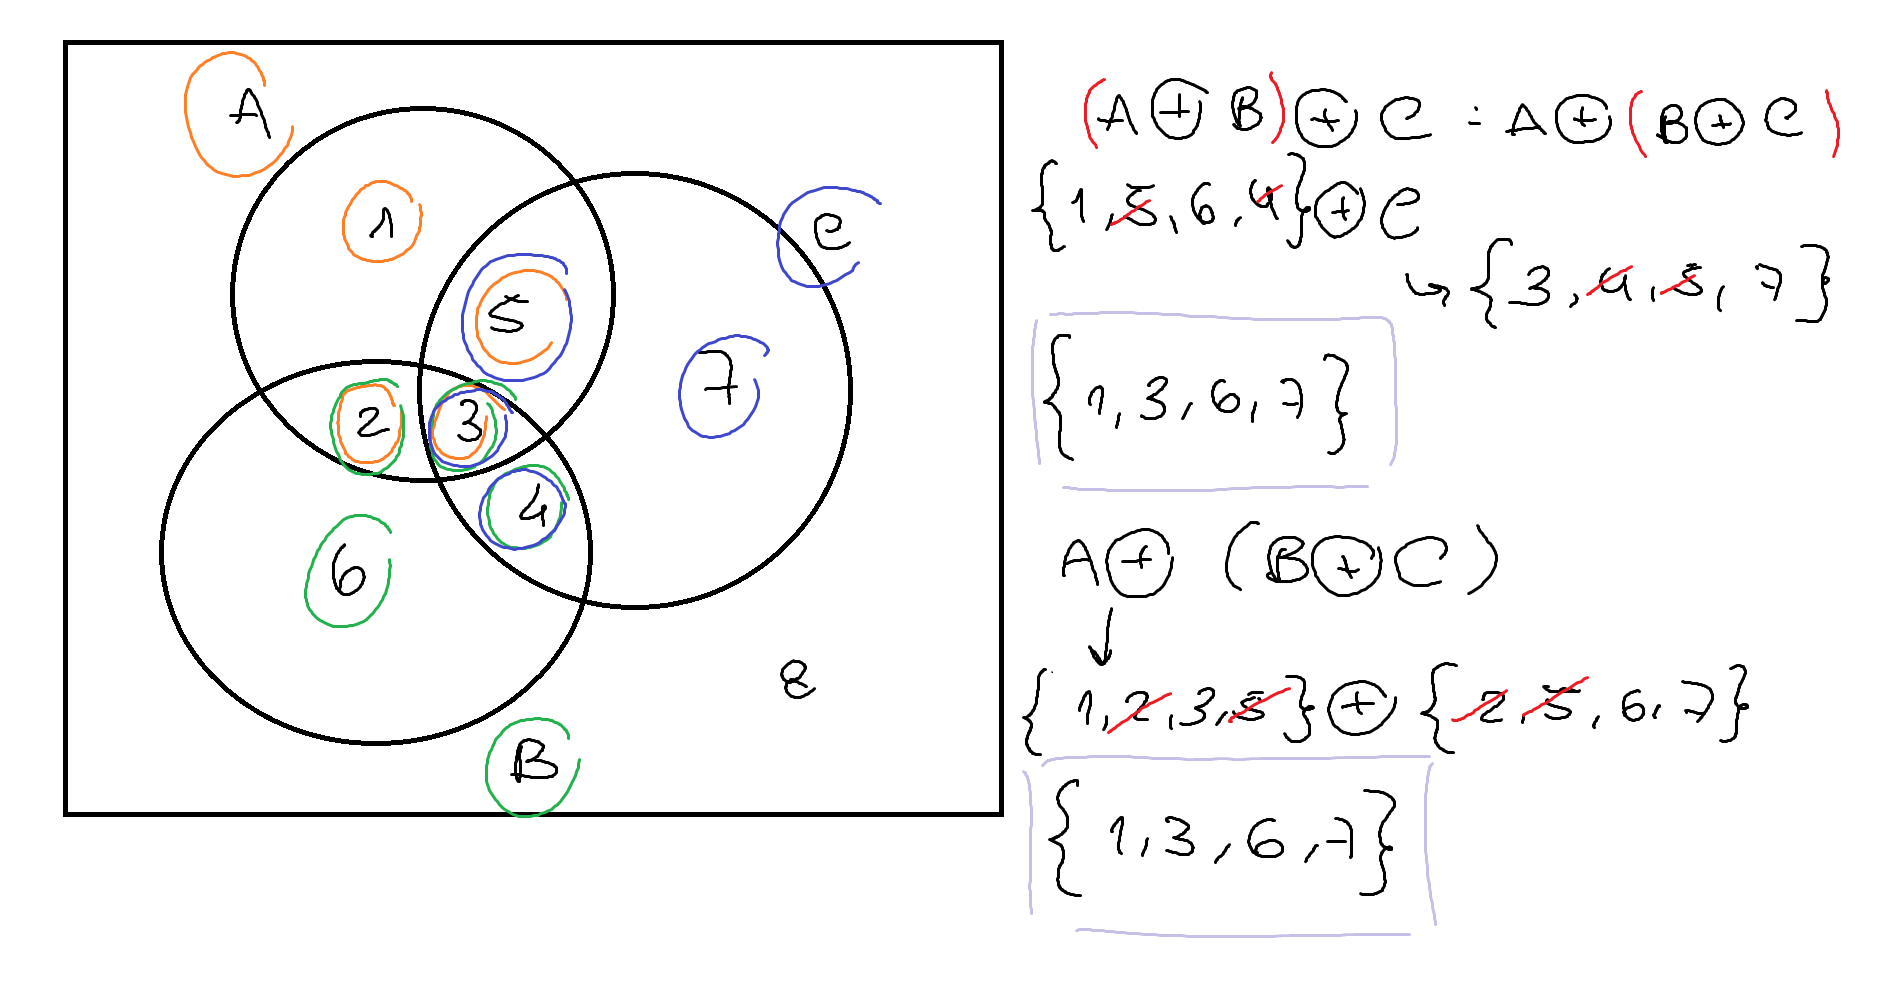 A
1
C
5
7
2
3
4
6
8
B
(A ⊕ B) ⊕ C = A ⊕ (B ⊕ C)
{1, 5, 6, 4} ⊕ C
↪ {3, 4, 5, 7}
{1, 3, 6, 7}
A ⊕ (B ⊕ C)
↓
{1, 2, 3, 5} ⊕ {2, 5, 6, 7}
{1, 3, 6, 7}